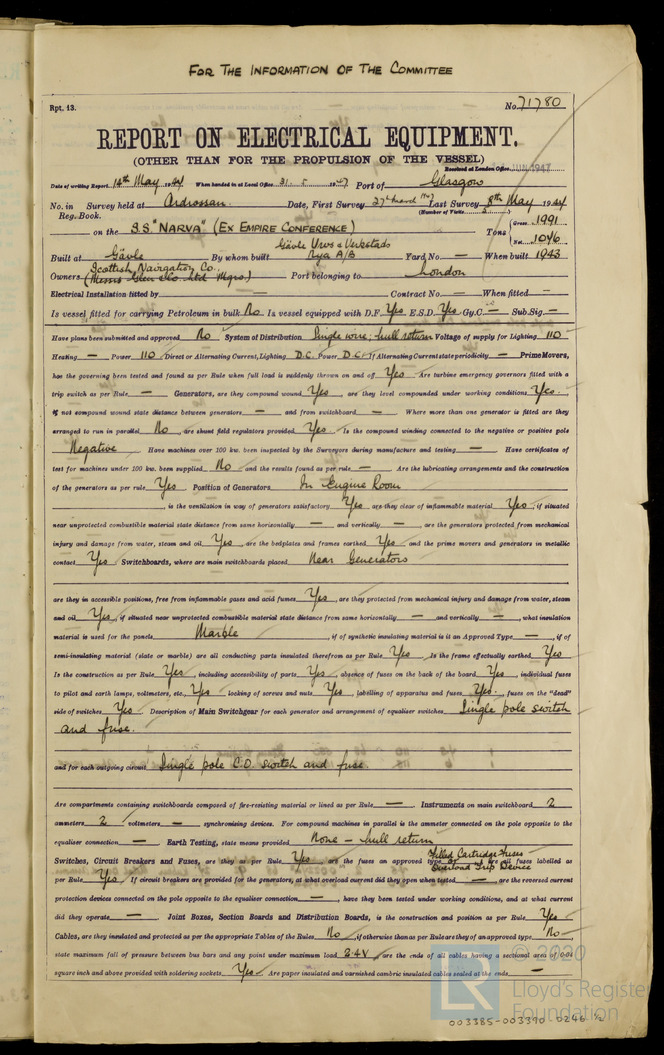 FOR THE INFORMATION OF THE COMMITTEE
Rpt. 13. No. 71780
REPORT ON ELECTRICAL EQUIPMENT.
(OTHER THAN FOR THE PROPULSION OF THE VESSEL)
Received at London Office JUN 1947
Date of writing Report 14th May 1947 When handed in at Local Office 31. 5 1947 Port of Glasgow
No. in Survey held at Ardrossan. Date, First Survey 27th March 1947 Last Survey 8th May 1947
Reg. Book. (Number of Visits
on the S.S. "NARVA" (EX EMPIRE CONFERENCE) Tons Gross 1991 Net 1046
Built at Gävle By whom built Gävle Varvs & Verkstads Nya A/B Yard No. — When built 1943
Owners Scottish Navigation Co. (Messrs Glen & Co. Ltd Mgrs.) Port belonging to London
Electrical Installation fitted by — Contract No. — When fitted —
Is vessel fitted for carrying Petroleum in bulk No. Is vessel equipped with D.F. Yes E.S.D. Yes Gy.C. — Sub.Sig. —
Have plans been submitted and approved No System of Distribution Single wire; hull return Voltage of supply for Lighting 110
Heating — Power 110 Direct or Alternating Current, Lighting D.C. Power D.C. If Alternating Current state periodicity — Prime Movers,
has the governing been tested and found as per Rule when full load is suddenly thrown on and off Yes. Are turbine emergency governors fitted with a
trip switch as per Rule — Generators, are they compound wound Yes, are they level compounded under working conditions Yes.
if not compound wound state distance between generators — and from switchboard — Where more than one generator is fitted are they
arranged to run in parallel No, are shunt field regulators provided Yes. Is the compound winding connected to the negative or positive pole
Negative Have machines over 100 kw. been inspected by the Surveyors during manufacture and testing — Have certificates of
test for machines under 100 kw. been supplied No and the results found as per rule — Are the lubricating arrangements and the construction
of the generators as per rule Yes Position of Generators In Engine Room
, is the ventilation in way of generators satisfactory Yes are they clear of inflammable material Yes, if situated
near unprotected combustible material state distance from same horizontally — and vertically — , are the generators protected from mechanical
injury and damage from water, steam and oil Yes, are the bedplates and frames earthed Yes and the prime movers and generators in metallic
contact Yes Switchboards, where are main switchboards placed Near Generators
are they in accessible positions, free from inflammable gases and acid fumes Yes, are they protected from mechanical injury and damage from water, steam
and oil Yes, if situated near unprotected combustible material state distance from same horizontally — and vertically — , what insulation
material is used for the panels Marble , if of synthetic insulating material is it an Approved Type — , if of
semi-insulating material (slate or marble) are all conducting parts insulated therefrom as per Rule Yes Is the frame effectually earthed Yes
Is the construction as per Rule Yes, including accessibility of parts Yes, absence of fuses on the back of the board Yes, individual fuses
to pilot and earth lamps, voltmeters, etc., Yes locking of screws and nuts Yes, labelling of apparatus and fuses Yes. fuses on the "dead"
side of switches Yes Description of Main Switchgear for each generator and arrangement of equaliser switches Single pole switch
and fuse.
and for each outgoing circuit Single pole C.O. switch and fuse.
Are compartments containing switchboards composed of fire-resisting material or lined as per Rule — Instruments on main switchboard 2
ammeters 2 voltmeters — synchronising devices. For compound machines in parallel is the ammeter connected on the pole opposite to the
equaliser connection — Earth Testing, state means provided None – hull return
Switches, Circuit Breakers and Fuses, are they as per Rule Yes are the fuses an approved type Filled Cartridge Fuses Overload Trip Device are all fuses labelled as
per Rule Yes If circuit breakers are provided for the generators, at what overload current did they open when tested — are the reversed current
protection devices connected on the pole opposite to the equaliser connection — , have they been tested under working conditions, and at what current
did they operate — Joint Boxes, Section Boards and Distribution Boards, is the construction and position as per Rule Yes
Cables, are they insulated and protected as per the appropriate Tables of the Rules No, if otherwise than as per Rule are they of an approved type No
state maximum fall of pressure between bus bars and any point under maximum load 2.4V are the ends of all cables having a sectional area of 0.04
square inch and above provided with soldering sockets Yes Are paper insulated and varnished cambric insulated cables sealed at the ends —
© 2020
LR
Lloyd's Register
Foundation
003385-003390 0246 ½